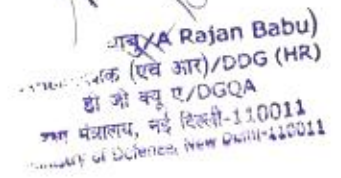 बाबू/A Rajan Babu)
(एच आर)/DDG (HR)
डी जी क्यू ए/DGQA
मंत्रालय, नई दिल्ली-110011
of Defence, New Delhi-110011